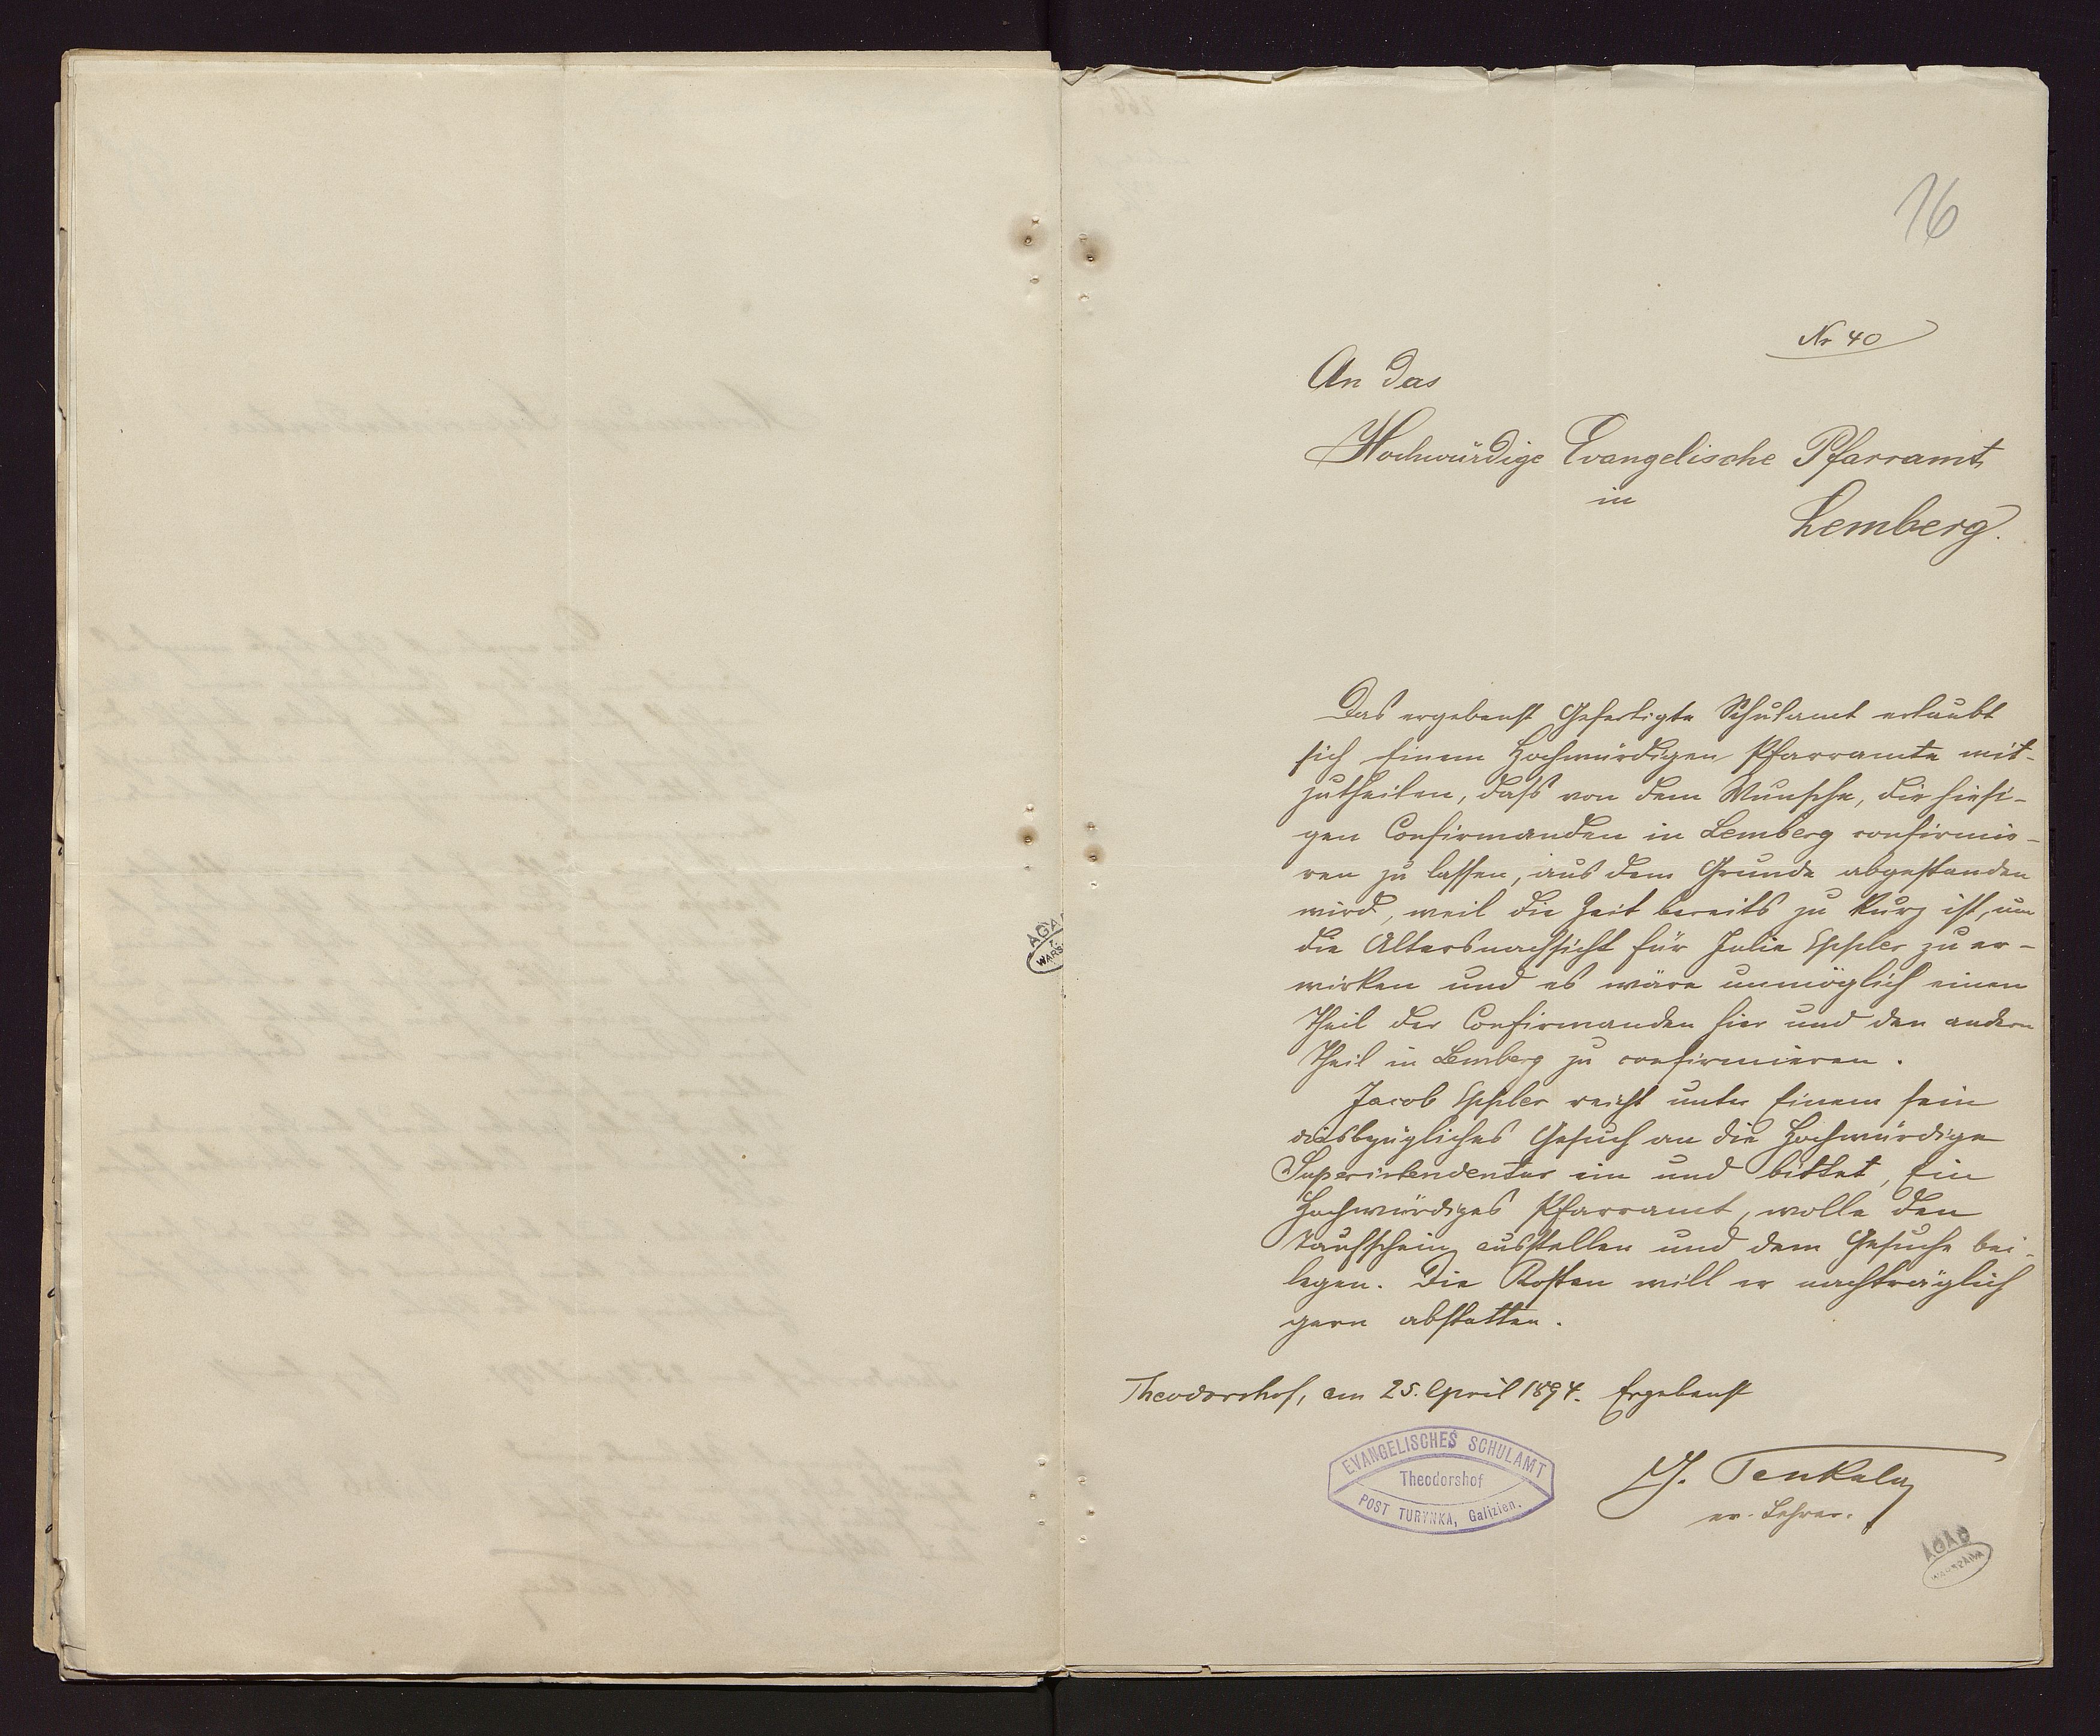 16
Nr 40
An das
Hochwürdige Evangelische Pfarramt
in
Lemberg.
Das ergebenst Gefertigte Schulamt erlaubt
sich Einem Hochwürdigen Pfarramte mit-
zutheilen, daß von dem Wunsche, die hiesi-
gen Confirmanden in Lemberg confirmie-
ren zu lassen, aus dem Grunde abgestanden
wird, weil die Zeit bereits zu kurz ist, um
die Altersnachsicht für Julie Eppler zu er-
wirken und es wäre unmöglich einen
Theil der Confirmanden hier und den andern
Theil in Lemberg zu confirmieren.
Jacob Eppler reicht unter Einem sein
diesbezügliches Gesuch an die Hochwürdige
Superintendentur ein und bittet, Ein
Hochwürdiges Pfarramt, wolle den
Taufschein ausstellen und dem Gesuche bei-
legen. Die Kosten will er nachträglich
gern abstatten.
Theodorshof, am 25. April 1894. Ergebenst
EVANGELISCHES SCHULAMT
Theodorshof
POST TURYNKA, Galizien.
J. Tenkely
ev. Lehrer.
AGAD
WARSZAWA